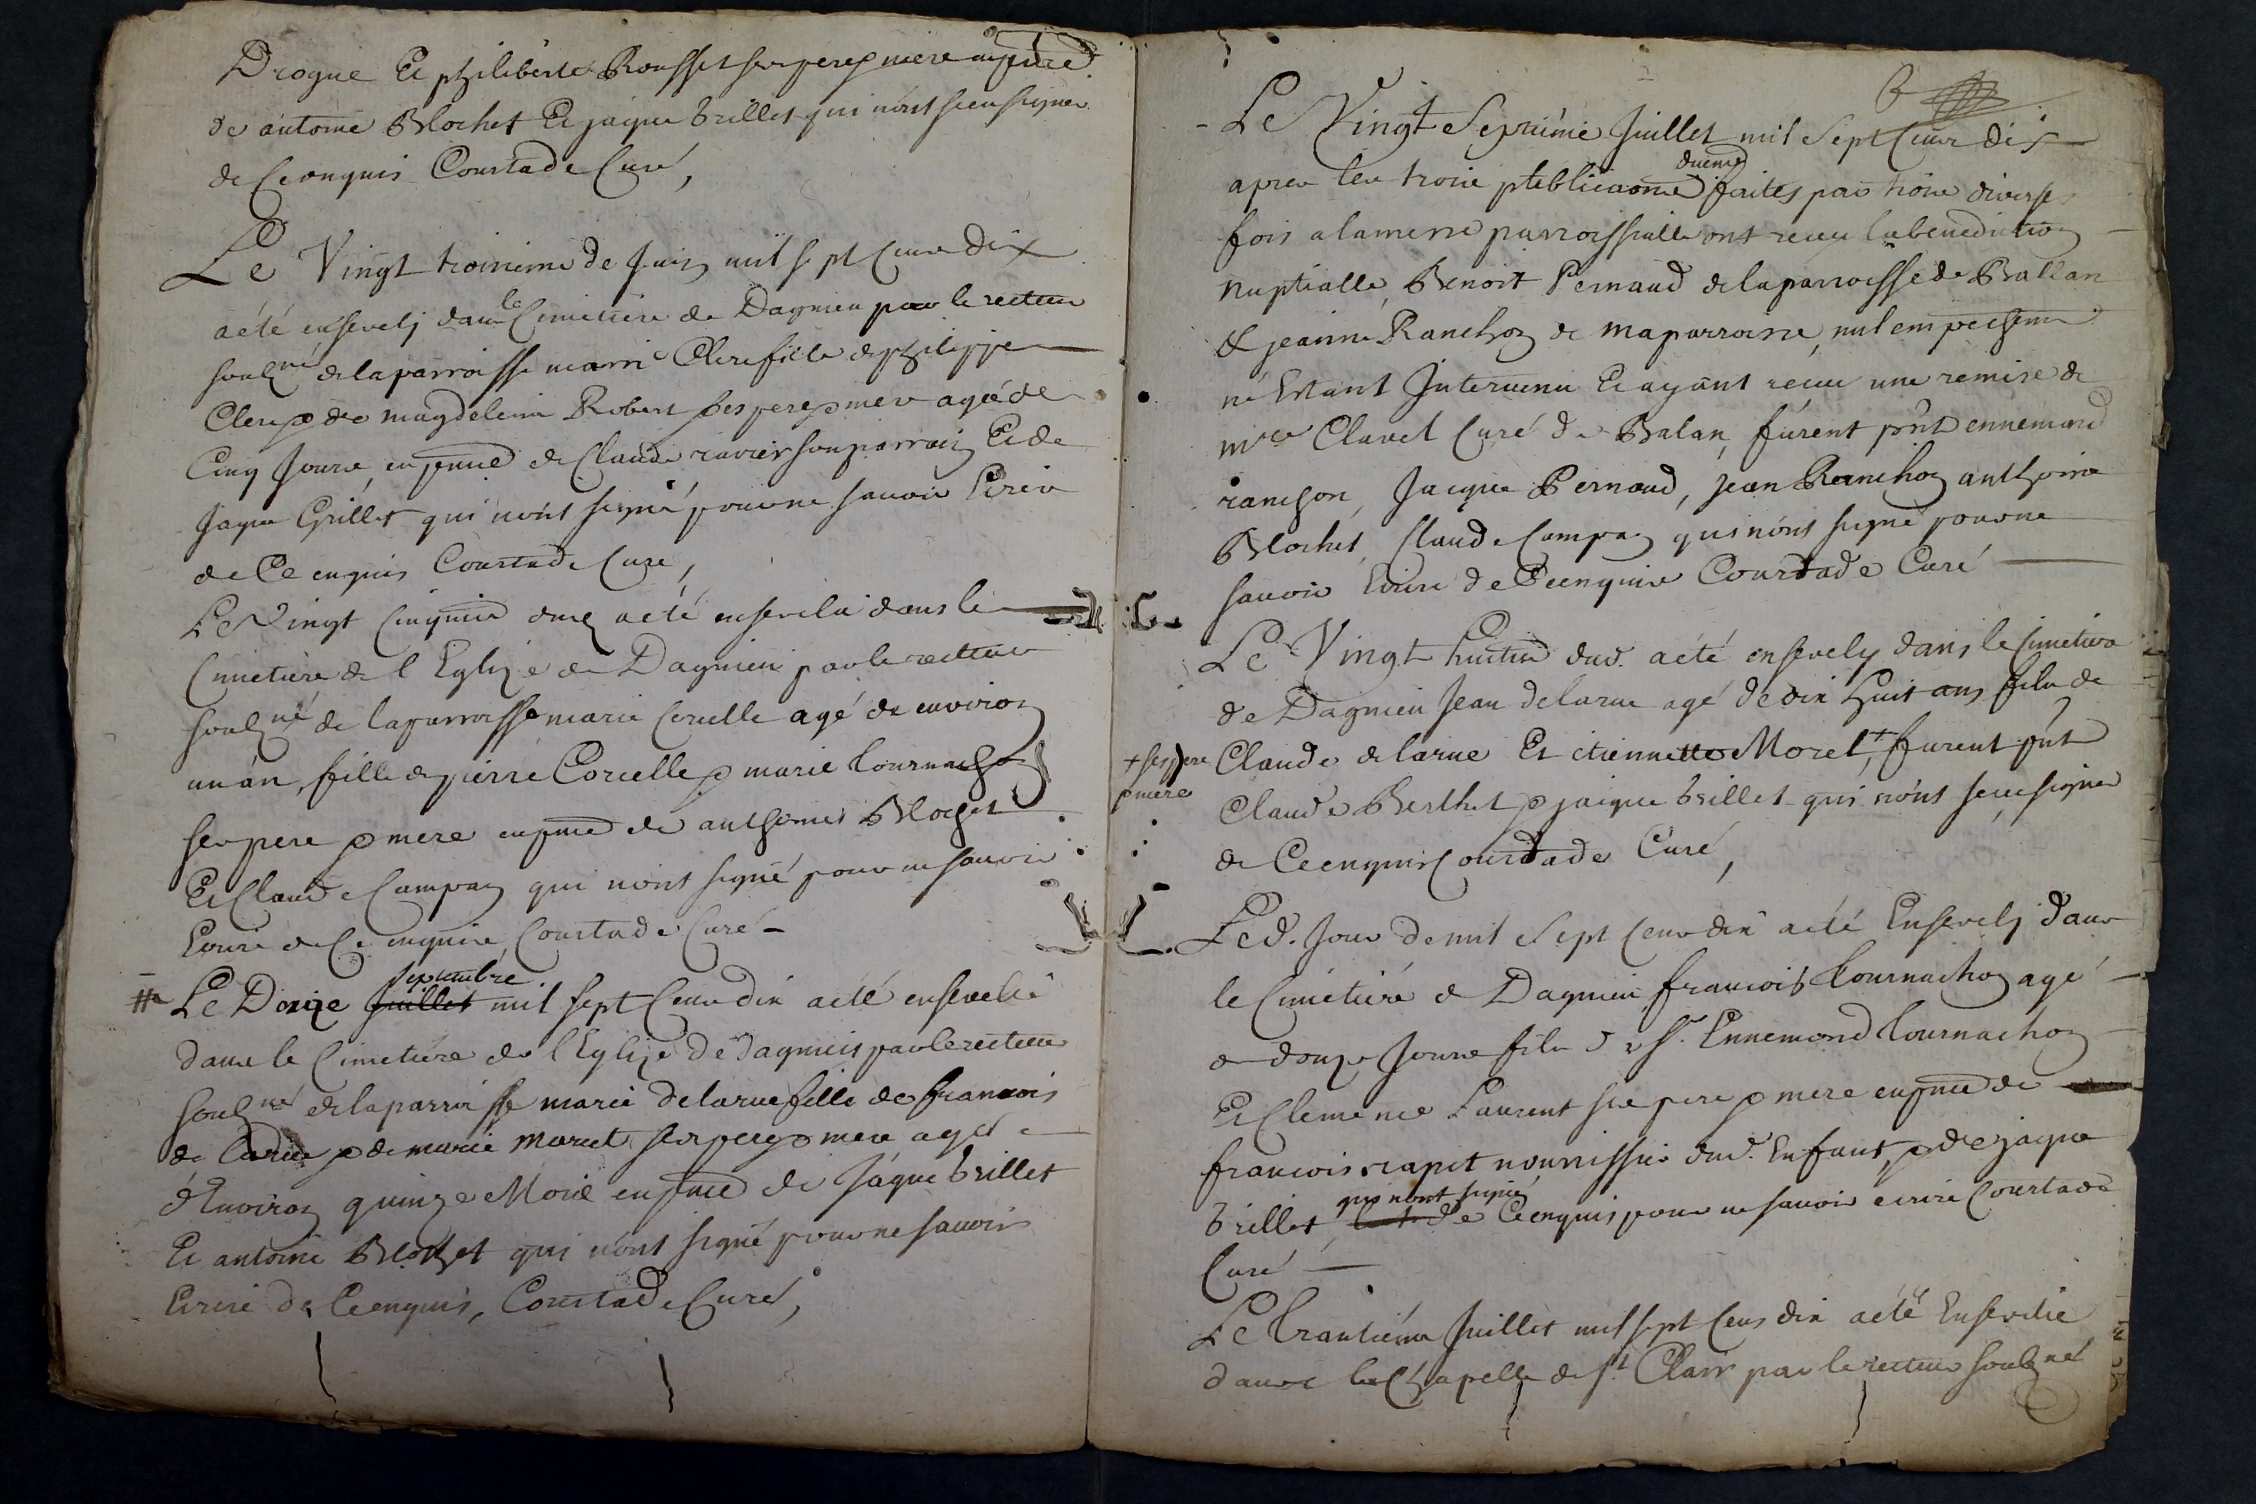 Drogue Et philiberte Rousset ses pere & mere en pnce
de antoine Blochet Et jaque Grillet qui n'ont sceu signer
de Ce enquis Courtade Curé,
Le Vingt troisieme de Juin mil sept Cens dix
a été enseveli dans le Cimetiere de Dagnieu par le recteur
soubzné de la parroisse marie Clere fille de philippe
Clere & de magdeleine Robert ses pere & mere agée de
Cinq Jours, en pnce de Claude ravier son parrain Et de
Jaque Grillet qui n'ont signé pour ne savoir Ecrire
de Ce enquis Courtade Curé,
Le Vingt Cinquieme dud a été ensevelie dans le
Cimetiere de l'Eglize de Dagnieu par le recteur
soubzné de la parroisse marie Corcelle agé de environ
un an, fille de pierre Corcelle & marie Tournachon
ses pere & mere en pnce de anthoine Blochet
Et Claude Campan qui n'ont signé pour ne savoir
Ecrire de Ce enquis, Courtade Curé
Le Douze juillet septembre mil sept Cens dix a été ensevelie
dans le Cimetiere de l'Eglize de dagnieu par le recteur
soubzné de la parroisse marie delarue fille de francois
de Larue & de marie Moret ses pere & mere agée
d'Environ quinze Mois en pnce de Jaque Grillet
Et antoine Blochet qui n'ont signé pour ne savoir
Ecrire de Ce enquis, Courtade Curé,
Le Vingt Septiéme Juillet mil Sept Cens dix
apres les trois publications duemt faites par trois diverses
fois a la messe parroissialle ont receu la benediction
nuptialle, Benoit Pernaud de la parroisse de Ballan
& jeanne Ranchon de ma parroisse, nul empechement
ne s'Estant Intervenu Et ayant receu une remise de
mre Clavel Curé de Balan, fûrent pnts ennemond
ranchon, Jacque Pernaud, Jean Ranchon anthoine
Blochet, Claude Campan qui n'ont signé pour ne
savoir Ecrire de Ce enquis Courtade Curé
Le Vingt huitie dud. a été ensevely dans le Cimetiere
de Dagnieu Jean delarue agé de dix huit ans fils de
Claude delarue Et etiennette Morel +, furent pnts
+ ses pere
& mere
Claude Berthet & jaique Grillet qui n'ont sceu signer
de Ce enquis Courtade Curé,
Led. Jour de mil Sept Cens dix a été Enseveli dans
le Cimetiére de Dagnieu francois Tournachon agé
de douze Jours fils de sr. Ennemond Tournachon
Et Clemence Laurent ses pere & mere en pnce de
francois rapet nourrissier dud. Enfant, & de jaque
Grillet, qui n'ont signé de Ce enquis pour ne savoir ecrire Courtade
Curé
Le Trantiéme Juillet mil sept Cens dix a été Ensevelie
dans la Chapelle de St Clair par le recteur soubzné